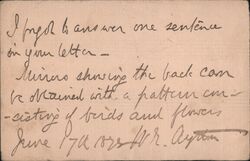 I forgot to answer one sentence
in your letter –
Mirrors showing the back can
be obtained with a pattern con-
sisting of birds and flowers
June 17th W. E. Ayrton